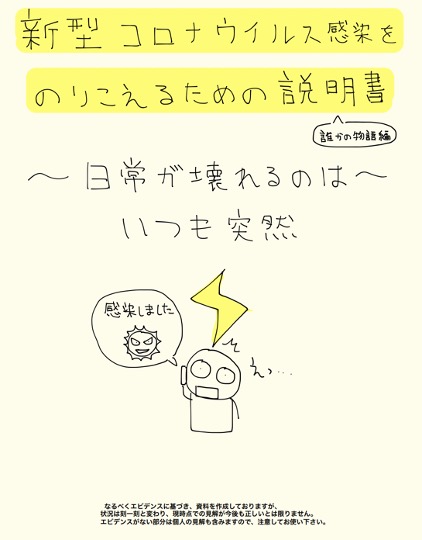 新型コロナウイルス感染を
のりこえるための説明書
誰かの物語編
～日常が壊れるのは～
いつも突然
感染しました
えっ…
なるべくエビデンスに基づき、資料を作成しておりますが、
状況は刻一刻と変わり、現時点での見解が今後も正しいとは限りません。
エビデンスがない部分は個人の見解も含みますので、注意してお使い下さい。